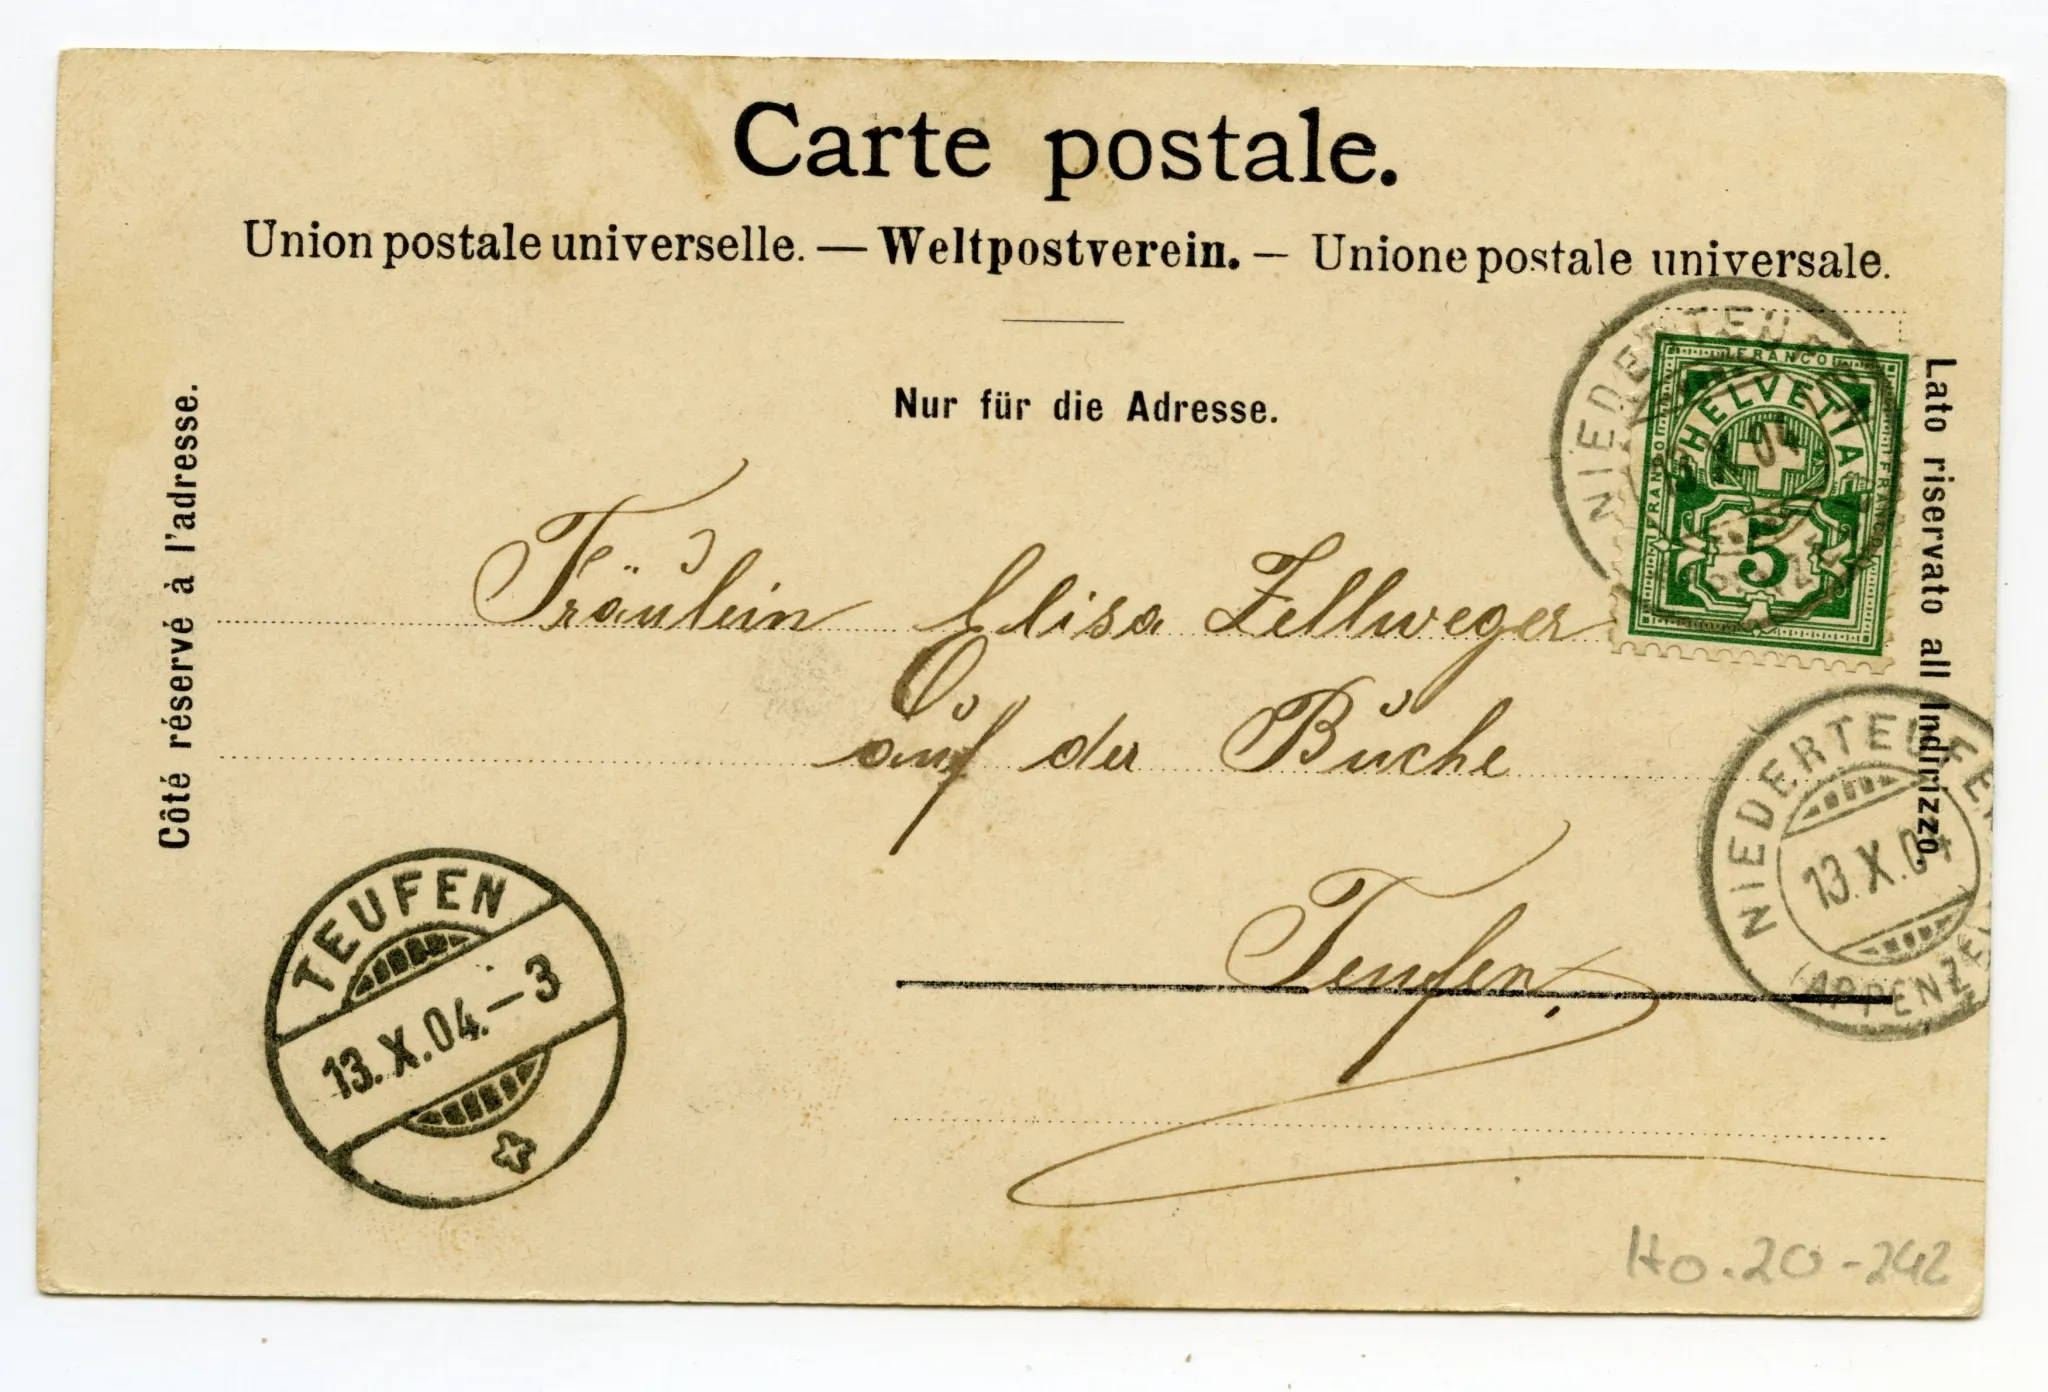 Carte postale.
Union postale universelle. — Weltpostverein. — Unione postale universale.
Nur für die Adresse.
Côté réservé à l'adresse.
Lato riservato all Indirizzo.
FRANCO
HELVETIA
FRANCO
FRANCO
5
04
Fräulein Elisa Zellweger
auf der Büche
Teufen.
NIEDERTEUFEN
13.X.04
(APPENZE
TEUFEN
13.X.04.–3
Ho.20-242